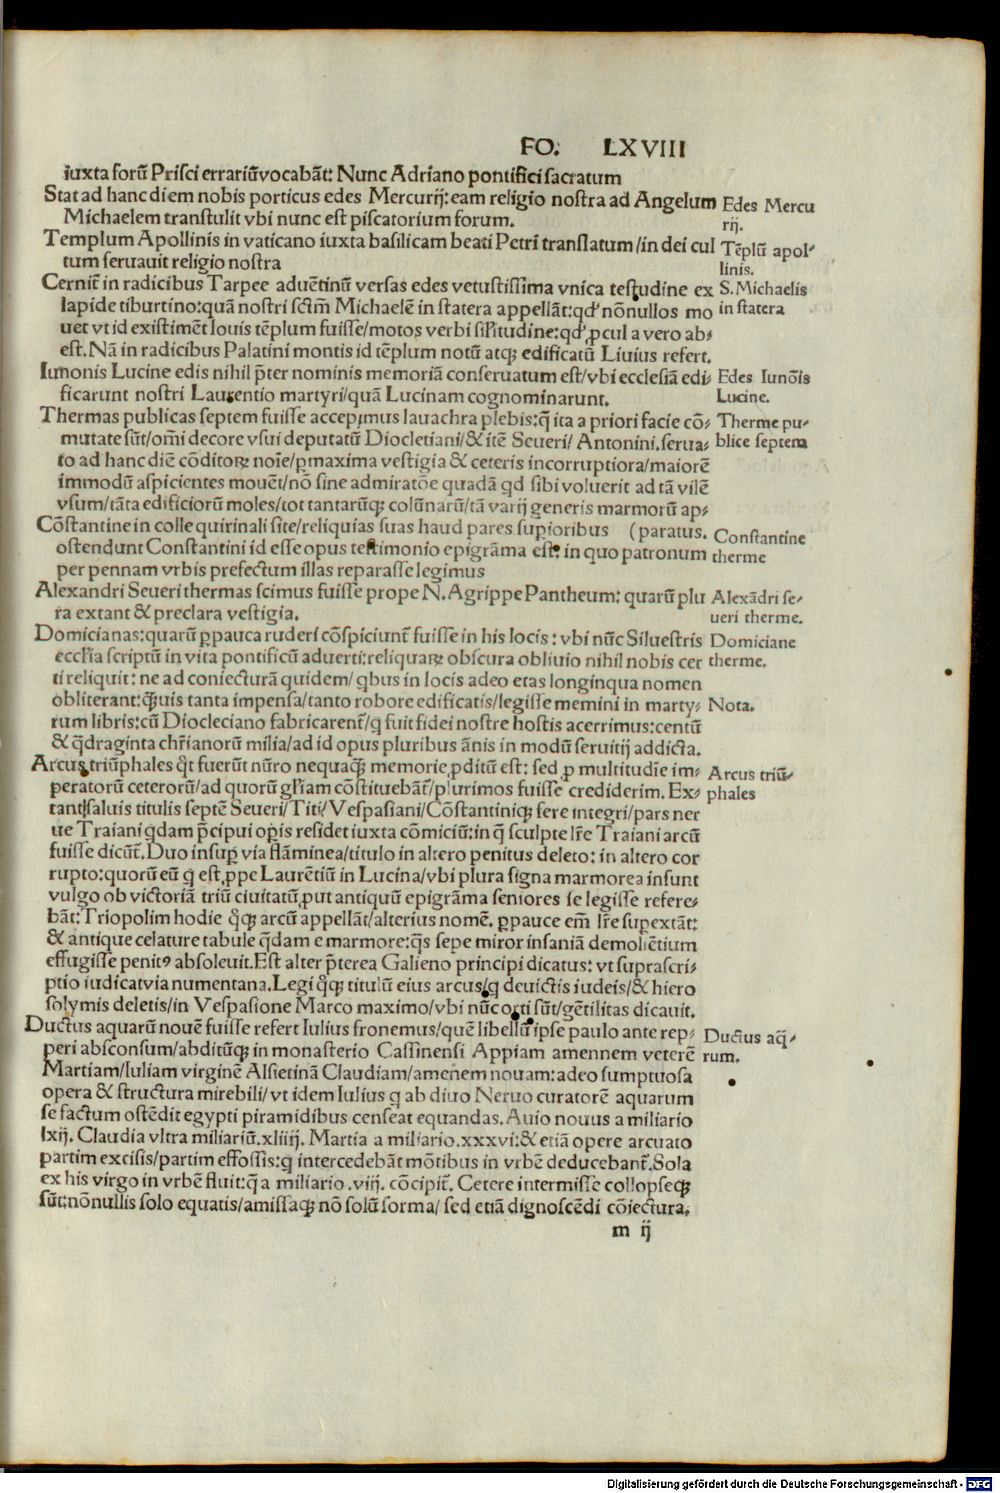 FO. LXVIII
iuxta forū Prisci errariū vocabāt: Nunc Adriano pontifici sacratum
Stat ad hanc diem nobis porticus edes Mercurij: eam religio nostra ad Angelum
Michaelem transtulit vbi nunc est piscatorium forum.
Edes Mercu
rij.
Templum Apollinis in vaticano iuxta basilicam beati Petri translatum/in dei cul
tum seruauit religio nostra
Tēplū apol⸗
linis.
Cernit̄ in radicibus Tarpee aduētinū versas edes vetustissima vnica testudine ex
lapide tiburtino: quā nostri sctm̄ Michaelē in statera appellāt: qd' nōnullos mo
uet vt id existimēt Iouis tēplum fuisse/motos verbi silitudine: qd' ꝓcul a vero ab⸗
est. Nā in radicibus Palatini montis id tēplum notū atqꝫ edificatū Liuius refert.
S. Michaelis
in statera
Iunonis Lucine edis nihil p̄ter nominis memoriā conseruatum est/vbi ecclesiā edi⸗
ficarunt nostri Laurentio martyri/quā Lucinam cognominarunt.
Edes Iunōis
Lucine.
Thermas publicas septem fuisse accepimus lauachra plebis: q̄ ita a priori facie cō⸗
mutate sūt/om̄i decore vsui deputatū Diocletiani/& itē Seueri/ Antonini. serua⸗
to ad hanc diē cōditorꝝ noīe/ꝑmaxima vestigia & ceteris incorruptiora/maiorē
immodū aspicientes mouēt/nō sine admiratōe quadā qd sibi voluerit ad tā vilē
vsum/tāta edificiorū moles/tot tantarūqꝫ colūnarū/tā varij generis marmorū ap⸗
Therme pu⸗
blice septem
Cōstantine in colle quirinali site/reliquias suas haud pares suꝑioribus (paratus.
ostendunt Constantini id esse opus testimonio epigrāma est: in quo patronum
per pennam vrbis prefectum illas reparasse legimus
Constantine
therme
Alexandri Seueri thermas scimus fuisse prope N. Agrippe Pantheum: quarū plu
ra extant & preclara vestigia.
Alexādri se⸗
ueri therme.
Domicianas: quarū ꝑpauca ruderi cōspiciunt̄ fuisse in his locis: vbi nūc Siluestris
eccl'ia scriptū in vita pontificū aduerti: reliquarꝝ obscura obliuio nihil nobis cer
ti reliquit: ne ad coniecturā quidem/ qbus in locis adeo etas longinqua nomen
obliterant: qꝫuis tanta impensa/tanto robore edificatis/legisse memini in marty⸗
rum libris: cū Diocleciano fabricarent̄/q fuit fidei nostre hostis acerrimus: centū
& q̄draginta chr̄ianorū milia/ad id opus pluribus ānis in modū seruitij addicta.
Domiciane
therme.
Nota.
Arcus triūphales q̄t fuerūt nūro nequaqꝫ memorie ꝓditū est: sed ꝓ multitudīe im⸗
peratorū ceterorū/ad quorū gl'iam cōstituebāt̄/plurimos fuisse crediderim. Ex⸗
tant saluis titulis septē Seueri/Titi/ Vespasiani/Cōstantiniqꝫ fere integri/pars ner
ue Traiani qdam p̄cipui oꝑis residet iuxta cōmiciū: in q̄ sculpte lr̄e Traiani arcū
fuisse dicūt. Duo insuꝑ via flāminea/titulo in altero penitus deleto: in altero cor
rupto: quorū eū q est ꝓpe Laurētiū in Lucina/vbi plura signa marmorea insunt
vulgo ob victoriā triū ciuitatū ꝓut antiquū epigrāma seniores se legisse refere⸗
bāt: Triopolim hodie q̄qꝫ arcū appellāt/alterius nomē. ꝑpauce em̄ lr̄e suꝑextāt:
& antique celature tabule q̄dam e marmore: q̄s sepe miror insaniā demoliētium
effugisse penitꝰ absoleuit. Est alter p̄terea Galieno principi dicatus: vt suprascri⸗
ptio iudicat via numentana. Legi q̄qꝫ titulū eius arcus/q deuictis iudeis/& hiero
solymis deletis/in Vespasione Marco maximo/vbi nūc orti sūt/gētilitas dicauit.
Arcus triū⸗
phales
Ductus aquarū nouē fuisse refert Iulius fronemus/quē libellū ipse paulo ante rep⸗
peri absconsum/abditūqꝫ in monasterio Cassinensi Appiam amennem veterē
Martiam/Iuliam virginē Alsietinā Claudiam/amenem nouam: adeo sumptuosa
opera & structura mirebili/vt idem Iulius q ab diuo Neruo curatorē aquarum
se factum ostēdit egypti piramidibus censeat equandas. Auio nouus a miliario
lxij. Claudia vltra miliariū. xliiij. Martia a miliario. xxxvi: & etiā opere arcuato
partim excisis/partim effossis: q intercedebāt mōtibus in vrbē deducebant̄. Sola
ex his virgo in vrbē fluit: q̄ a miliario .viij. cōcipit̄. Cetere intermisse collopseqꝫ
sūt: nōnullis solo equatis/amissaqꝫ nō solū forma/ sed etiā dignoscēdi cōiectura.
Ductus aq̄⸗
rum.
m ij
Digitalisierung gefördert durch die Deutsche Forschungsgemeinschaft - DFG